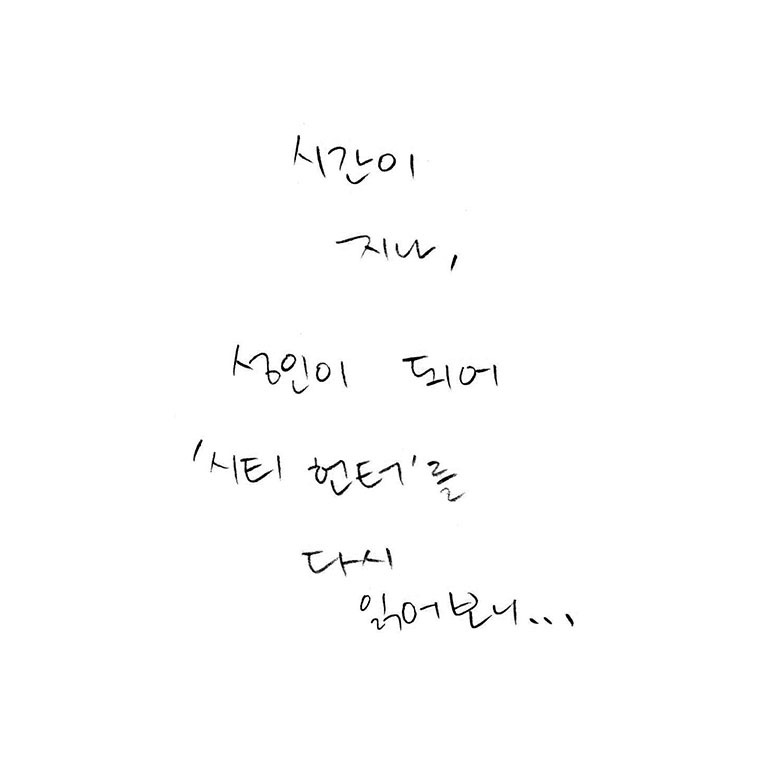 시간이
지나,
성인이 되어
'시티 헌터'를
다시
읽어보니...